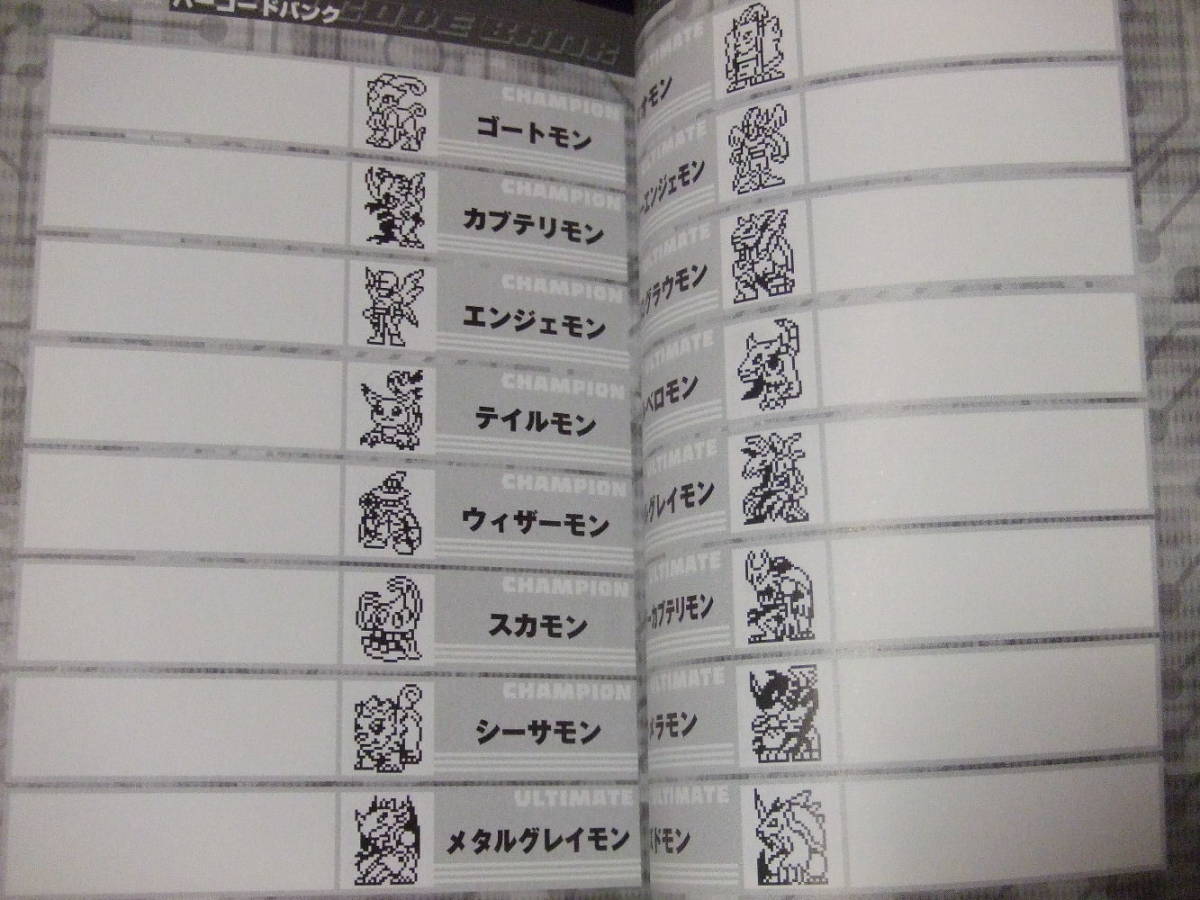 バーコードバンク CODE BANK
CHAMPION
ゴートモン
CHAMPION
カブテリモン
CHAMPION
エンジェモン
CHAMPION
テイルモン
CHAMPION
ウィザーモン
CHAMPION
スカモン
CHAMPION
シーサモン
ULTIMATE
メタルグレイモン
LTIMATE
オモン
LTIMATE
ーエンジェモン
LTIMATE
ーグラウモン
LTIMATE
ベロモン
ULTIMATE
ルグレイモン
ULTIMATE
ーカブテリモン
ULTIMATE
メラモン
ULTIMATE
ドモン